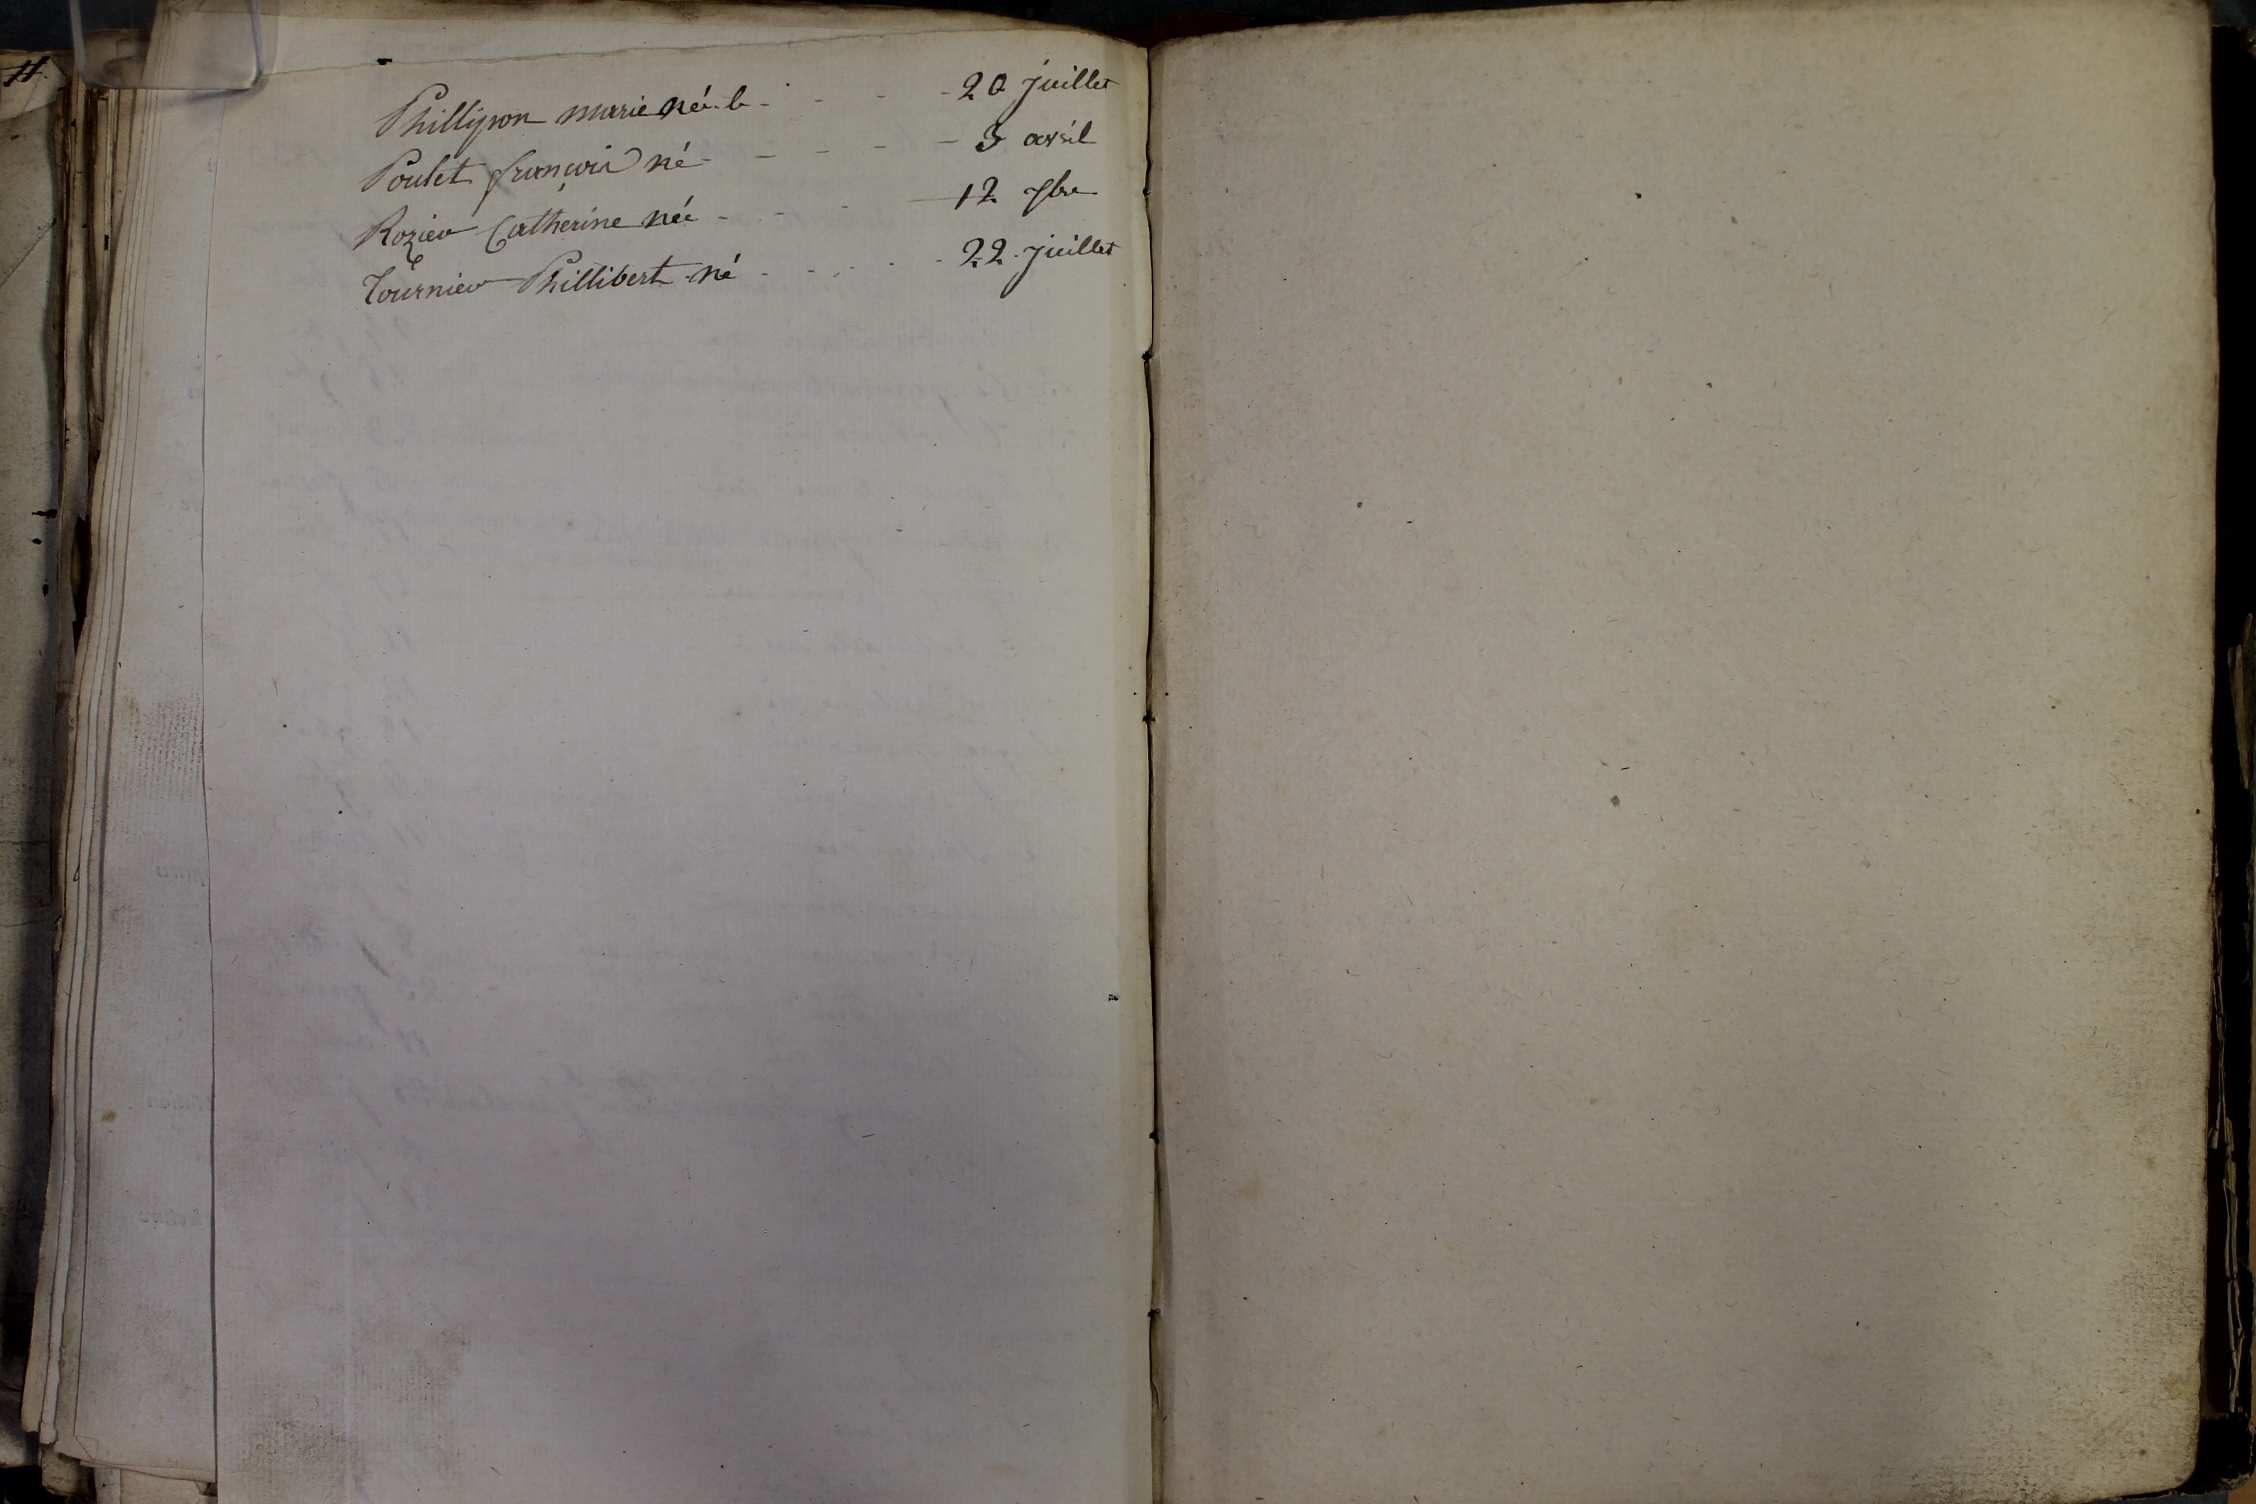 Phillipon marie née le - - - - 20 juillet
Poulet françois né - - - - - 3 avril
Rozier Catherine née - - - - 12 7bre
Tournier Phillibert né - - - - - 22 juillet